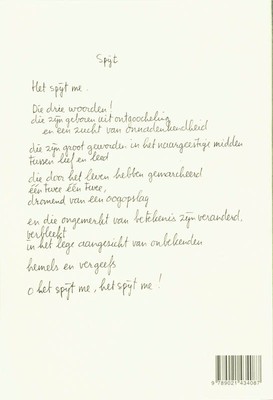 Spijt
Het spijt me.
Die drie woorden!
die zijn geboren uit ontgoocheling
en een zucht van onnadenkendheid
die zijn groot geworden in het naargeestige midden
tussen lief en leed
die door het leven hebben gemarcheerd
één twee één twee,
dromend van een oogopslag
en die ongemerkt van betekenis zijn veranderd,
verbleekt
in het lege aangezicht van onbekenden
hemels en vergeefs
o het spijt me, het spijt me!
9 789021 434087